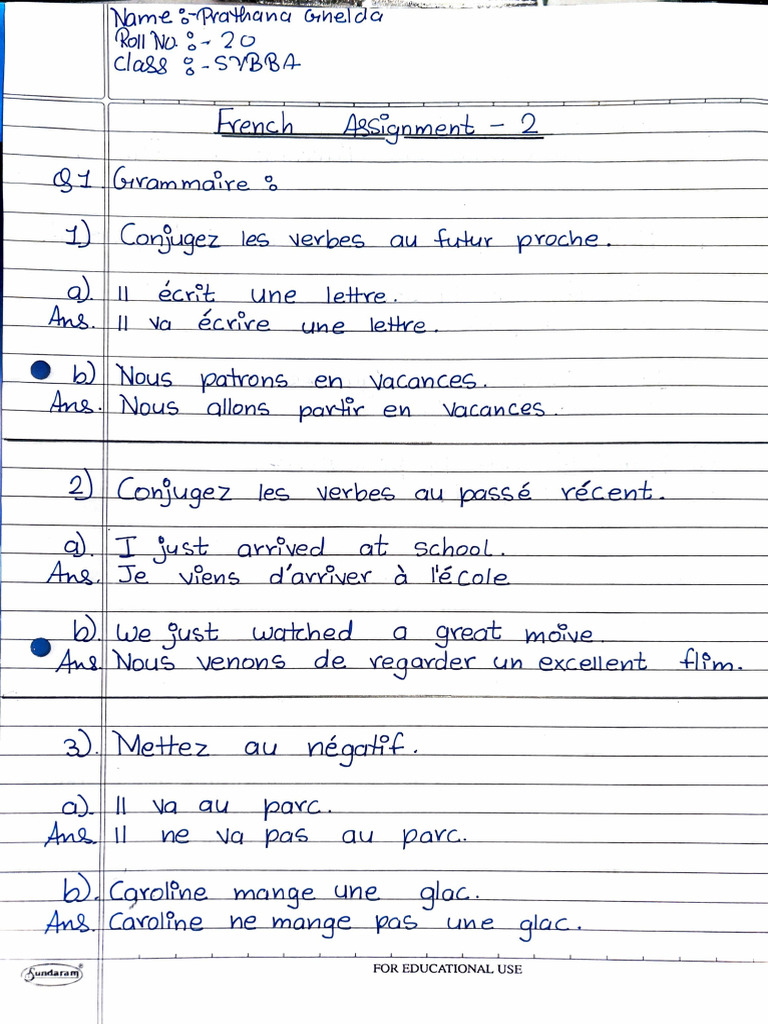 Name :- Prathana Gnelda
Roll No. :- 20
Class :- SYBBA
French Assignment - 2
Q1 Grammaire :
1) Conjugez les verbes au futur proche.
a). Il écrit une lettre.
Ans. Il va écrire une lettre.
b) Nous patrons en vacances.
Ans. Nous allons partir en vacances.
2) Conjugez les verbes au passé récent.
a). I just arrived at school.
Ans. Je viens d'arriver à l'école
b). We just watched a great moive.
Ans. Nous venons de regarder un excellent flim.
3). Mettez au négatif.
a). Il va au parc.
Ans Il ne va pas au parc.
b). Caroline mange une glac.
Ans. Caroline ne mange pas une glac.
Sundaram FOR EDUCATIONAL USE